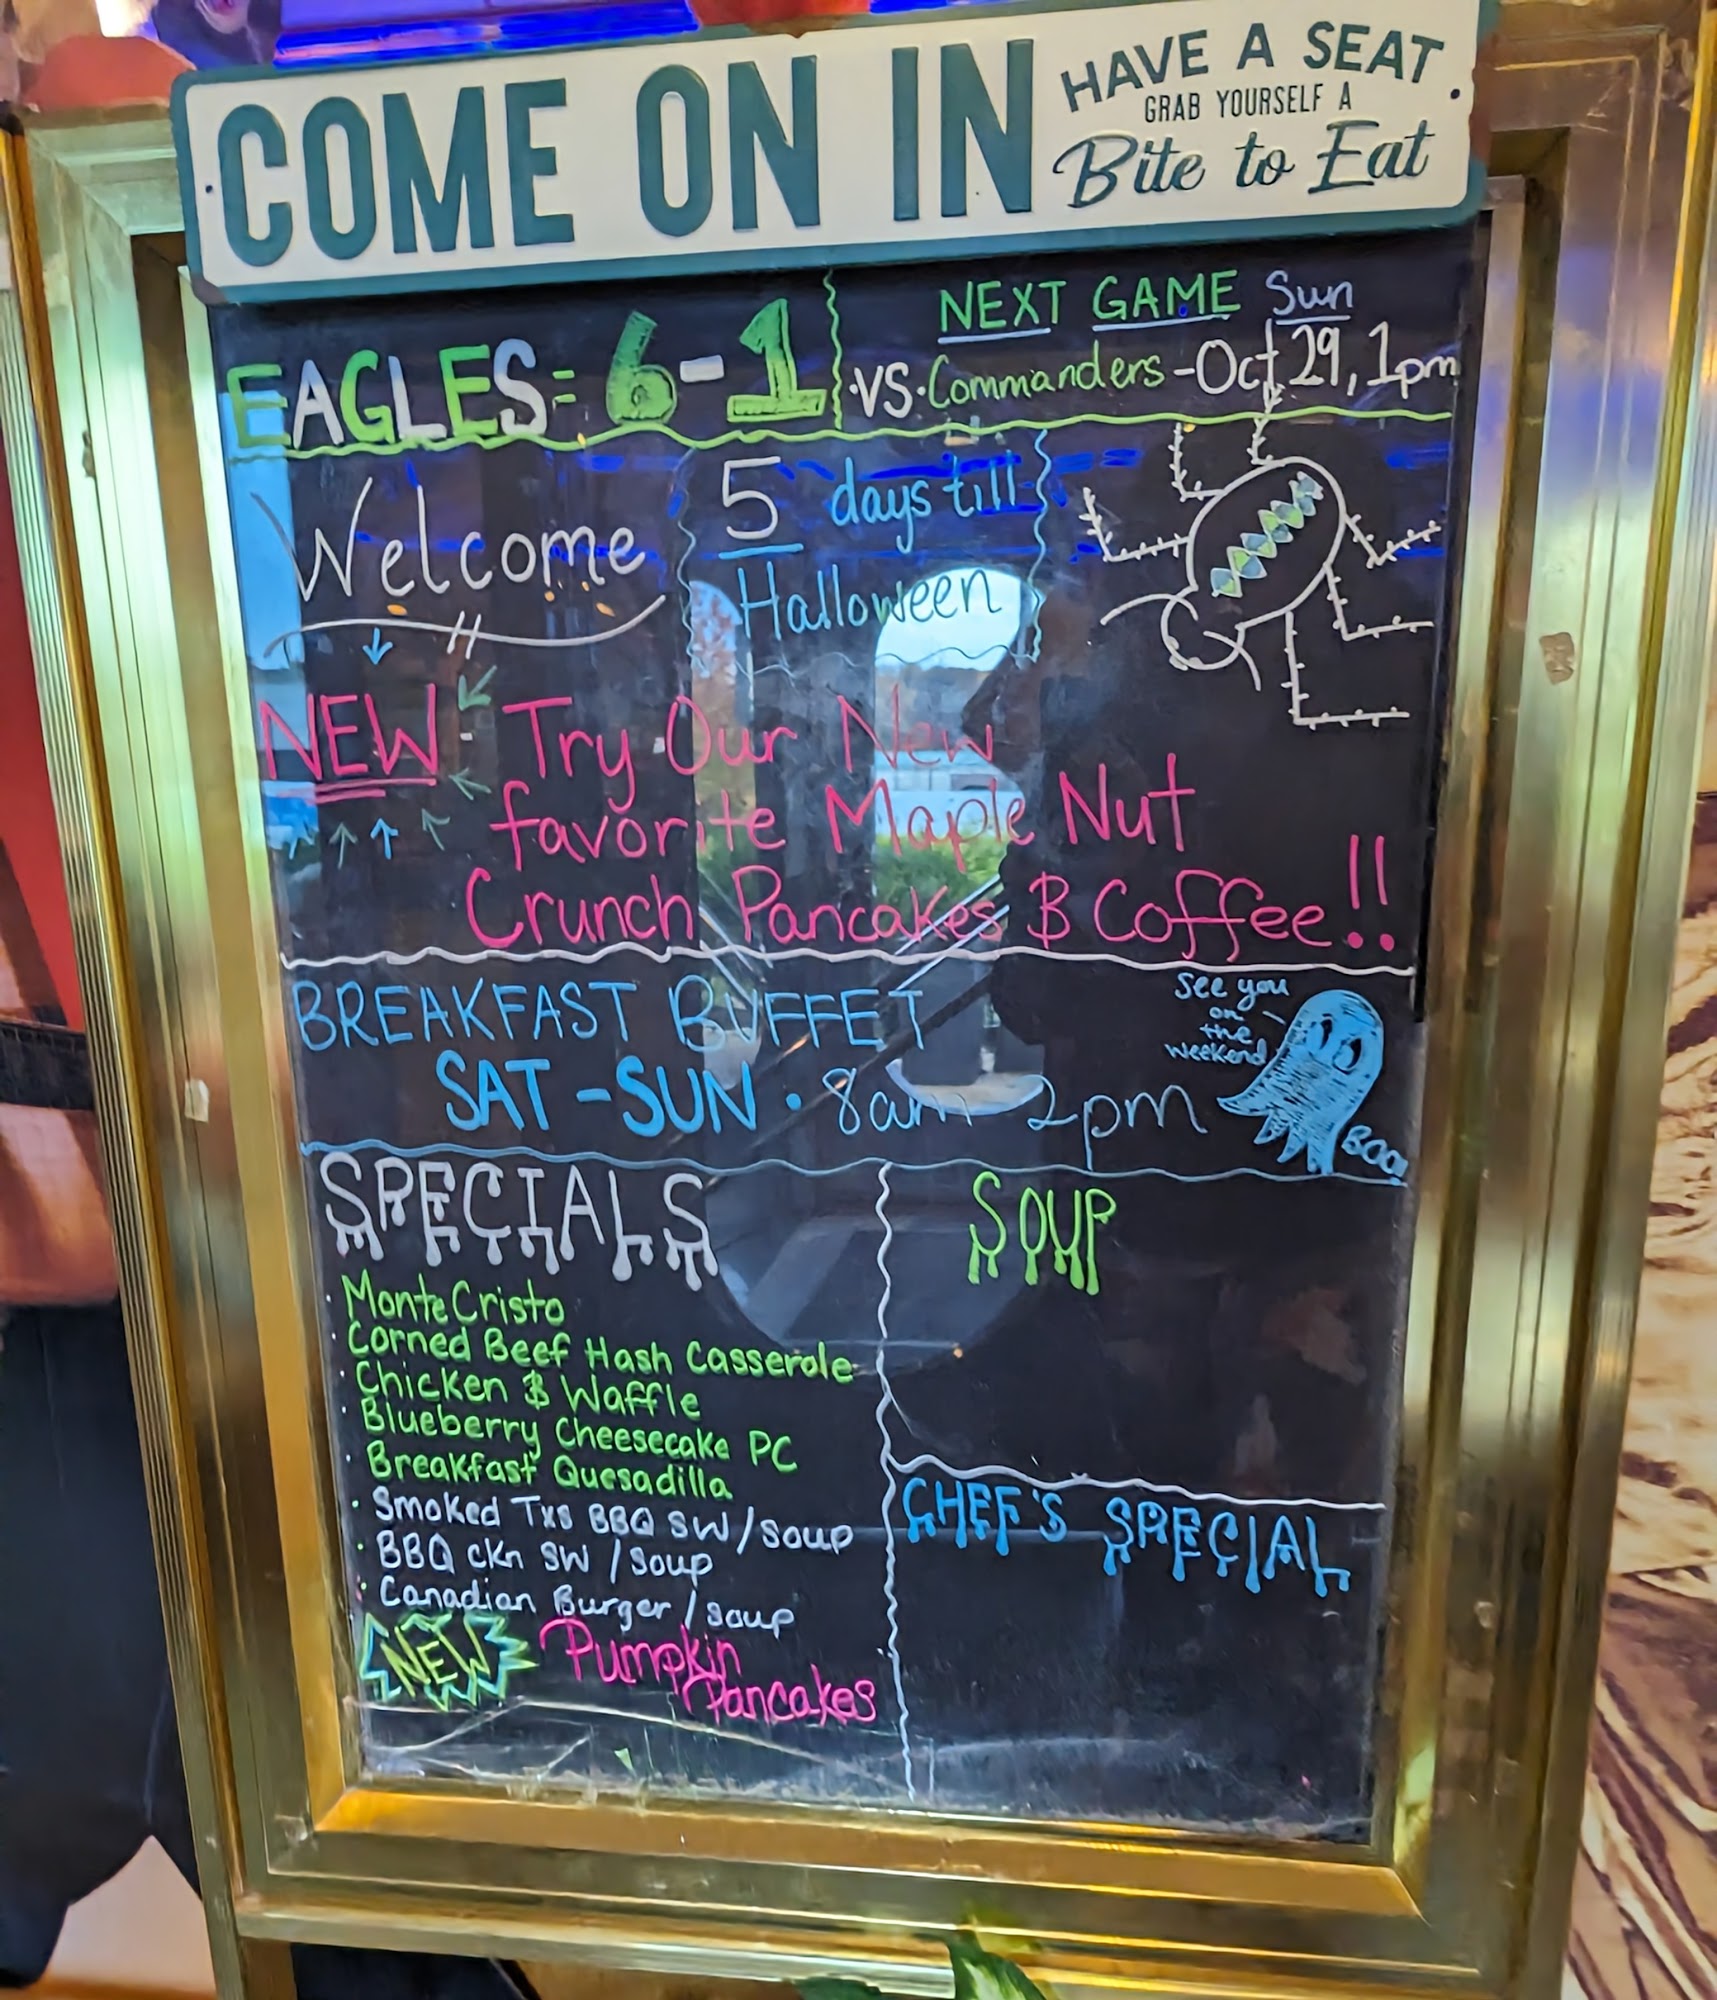 COME ON IN
HAVE A SEAT
GRAB YOURSELF A
Bite to Eat
EAGLES = 6-1
NEXT GAME Sun
·VS· Commanders - Oct 29, 1pm
Welcome
5 days till
Halloween
NEW: Try Our New
favorite Maple Nut
Crunch Pancakes & Coffee!!
BREAKFAST BUFFET
SAT - SUN · 8am 2pm
See you
on
the
weekend
BOO!
SPECIALS
· Monte Cristo
· Corned Beef Hash Casserole
· Chicken & Waffle
· Blueberry Cheesecake PC
· Breakfast Quesadilla
· Smoked Txs BBQ SW/Soup
· BBQ ckn SW/Soup
· Canadian Burger/Soup
NEW Pumpkin
Pancakes
SOUP
CHEF'S SPECIAL